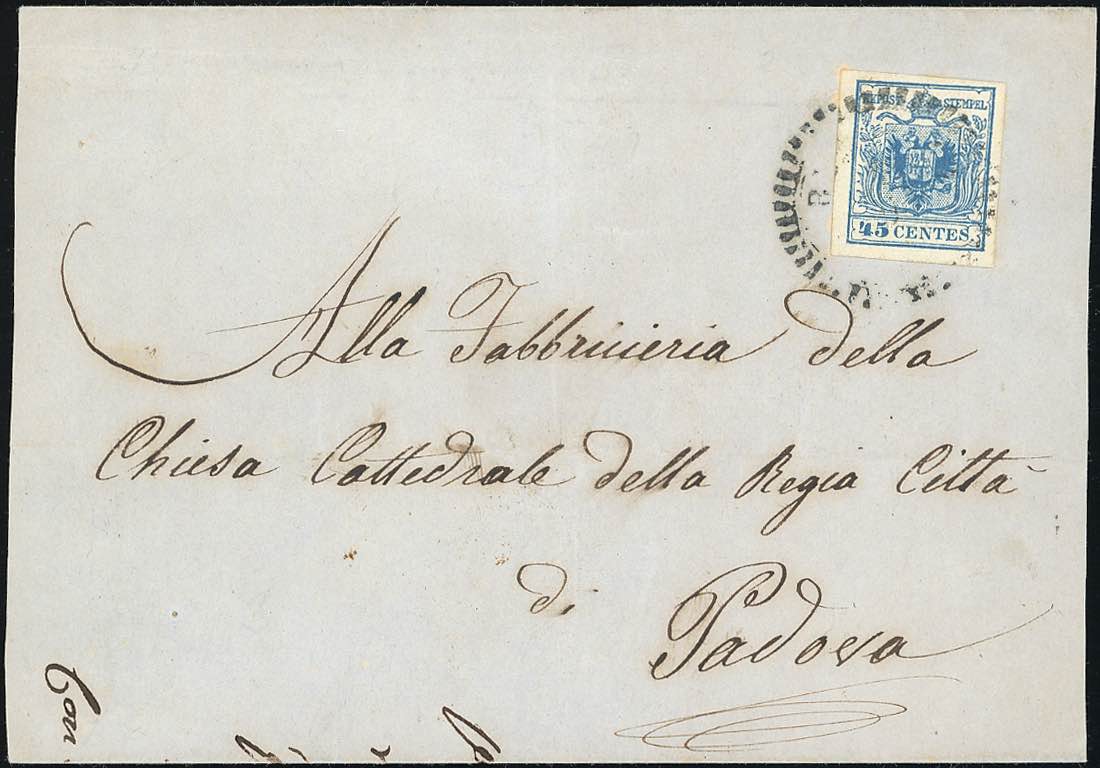 KKPOST STEMPEL
45 CENTES.
R
Alla Fabbricieria della
Chiesa Cattedrale della Regia Città
di
Padova
Con